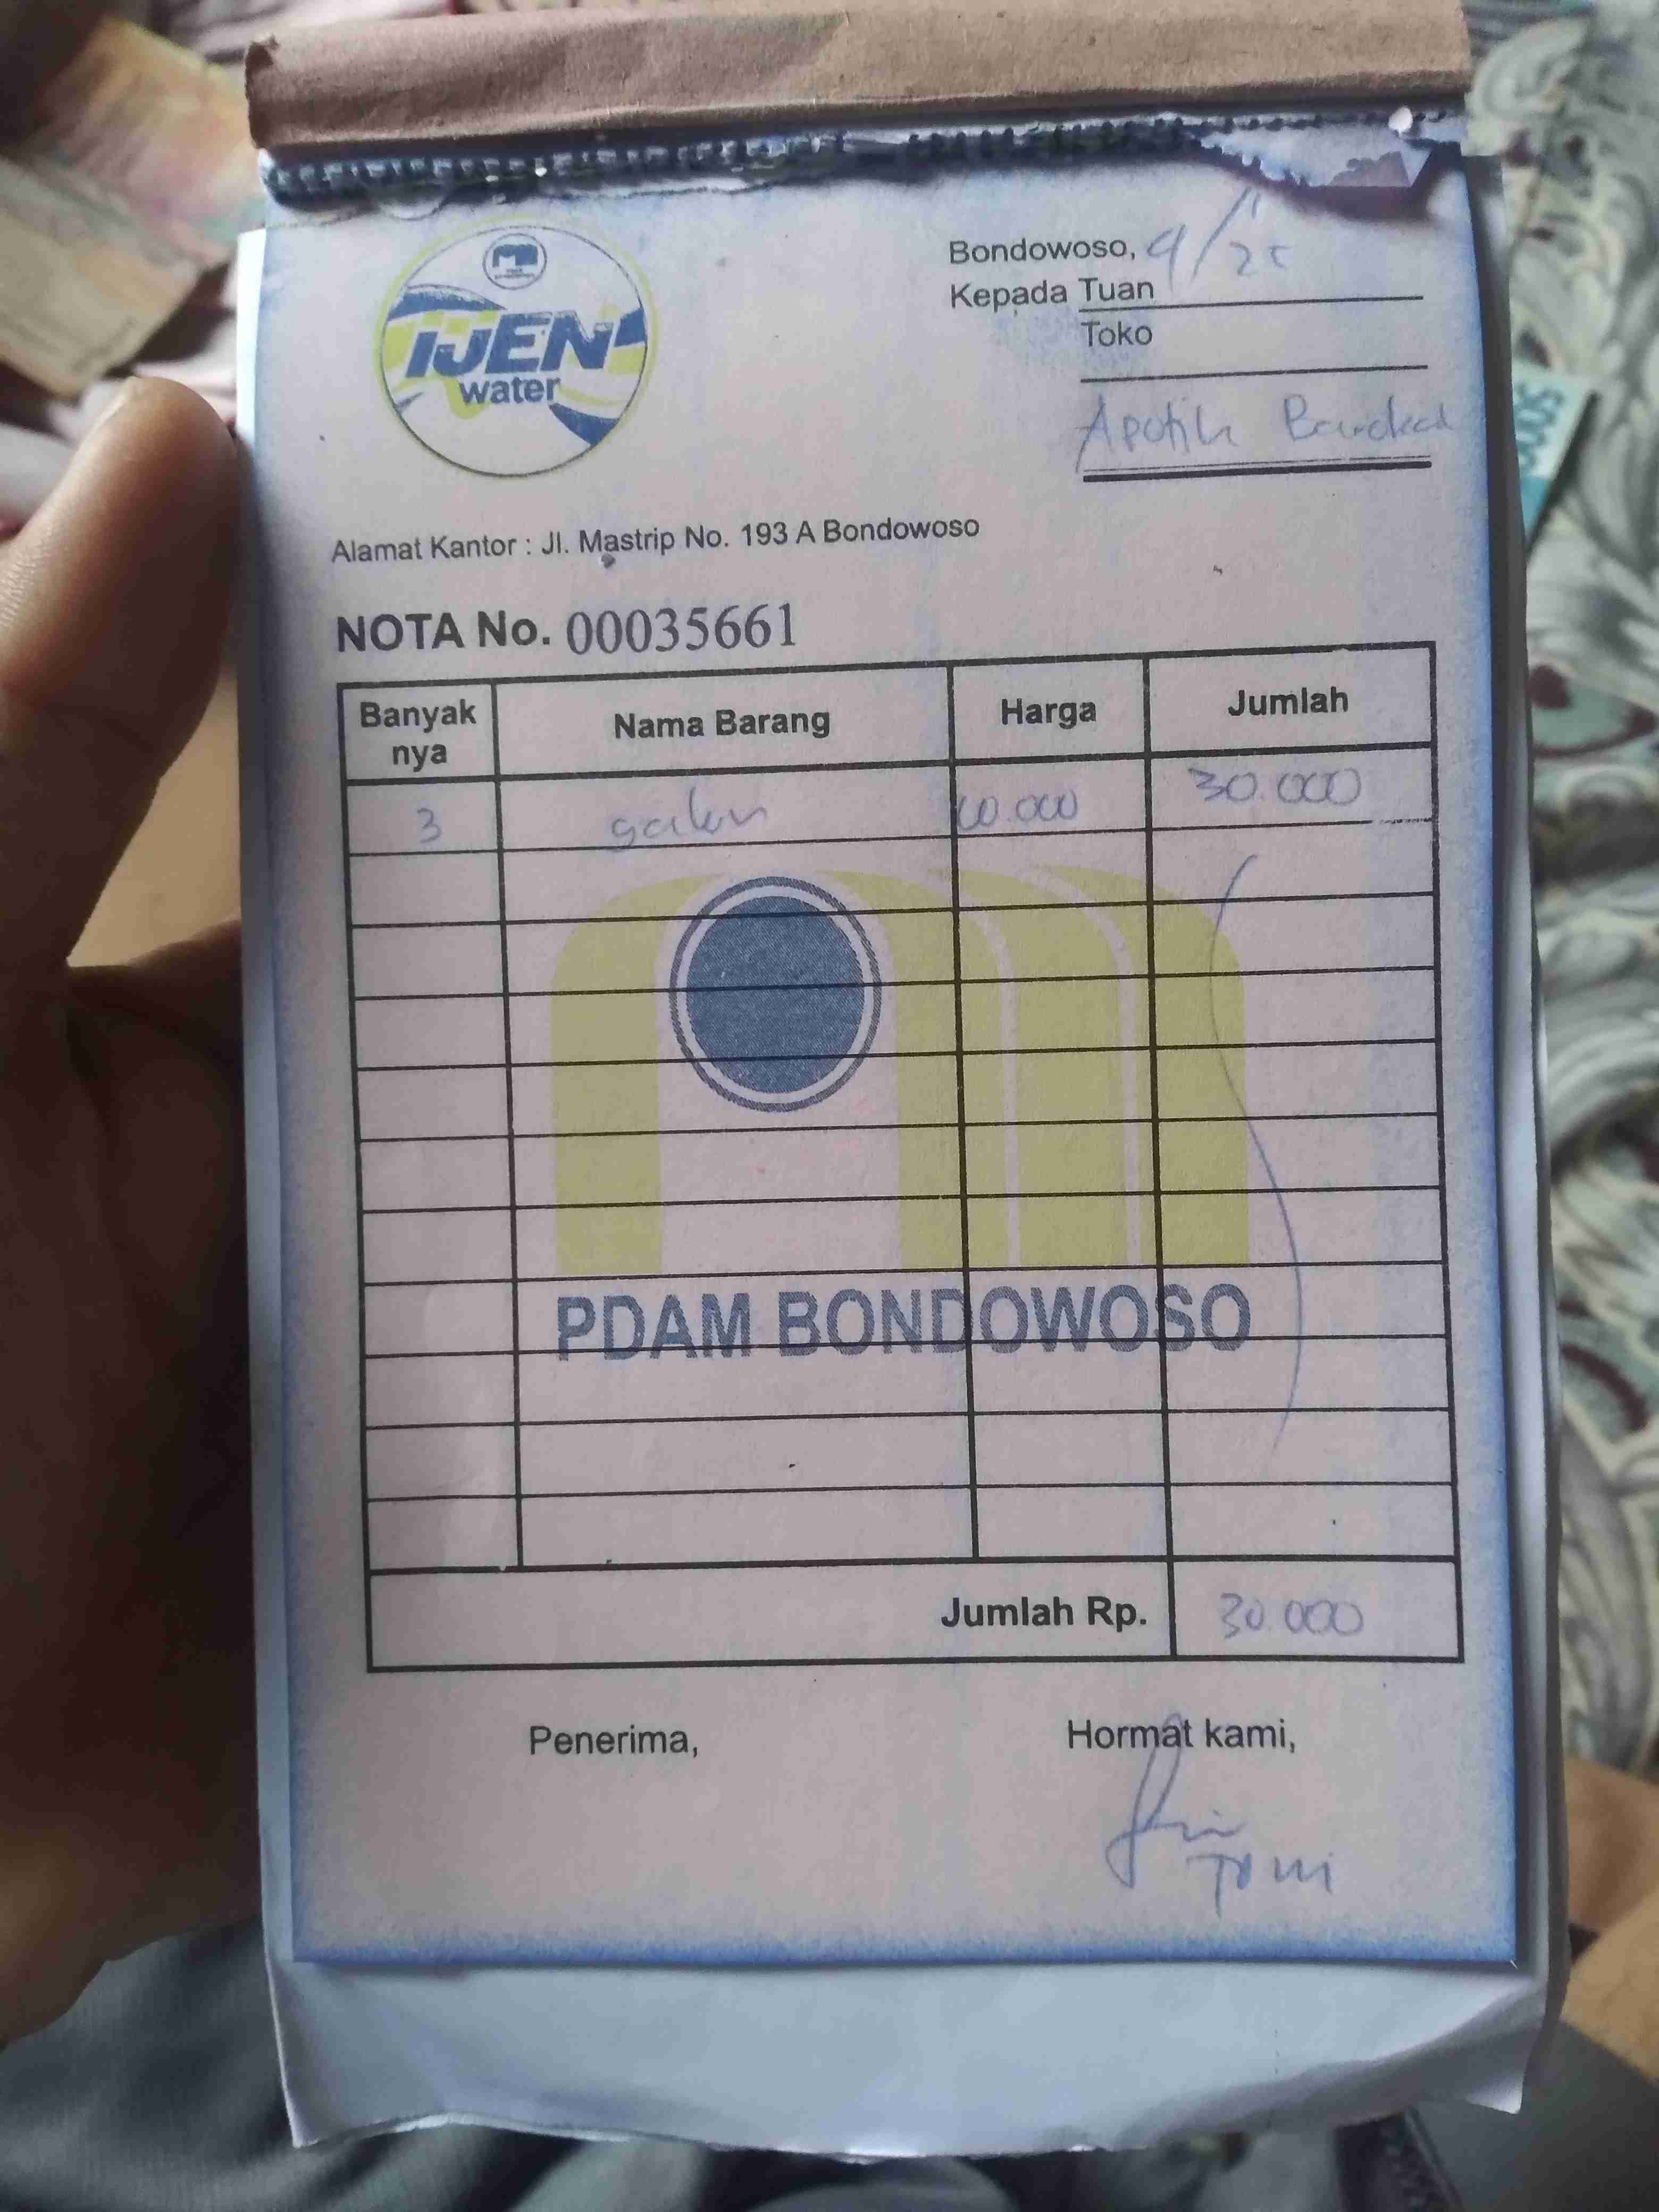 IJEN
water
Bondowoso, 9/25
Kepada Tuan
Toko
Apotik
Alamat Kantor : Jl. Mastrip No. 193 A Bondowoso
NOTA No. 00035661
Banyak nya Nama Barang Harga Jumlah
3 galon 10.000 30.000
PDAM BONDOWOSO
Jumlah Rp. 30.000
Penerima, Hormat kami,
Toni